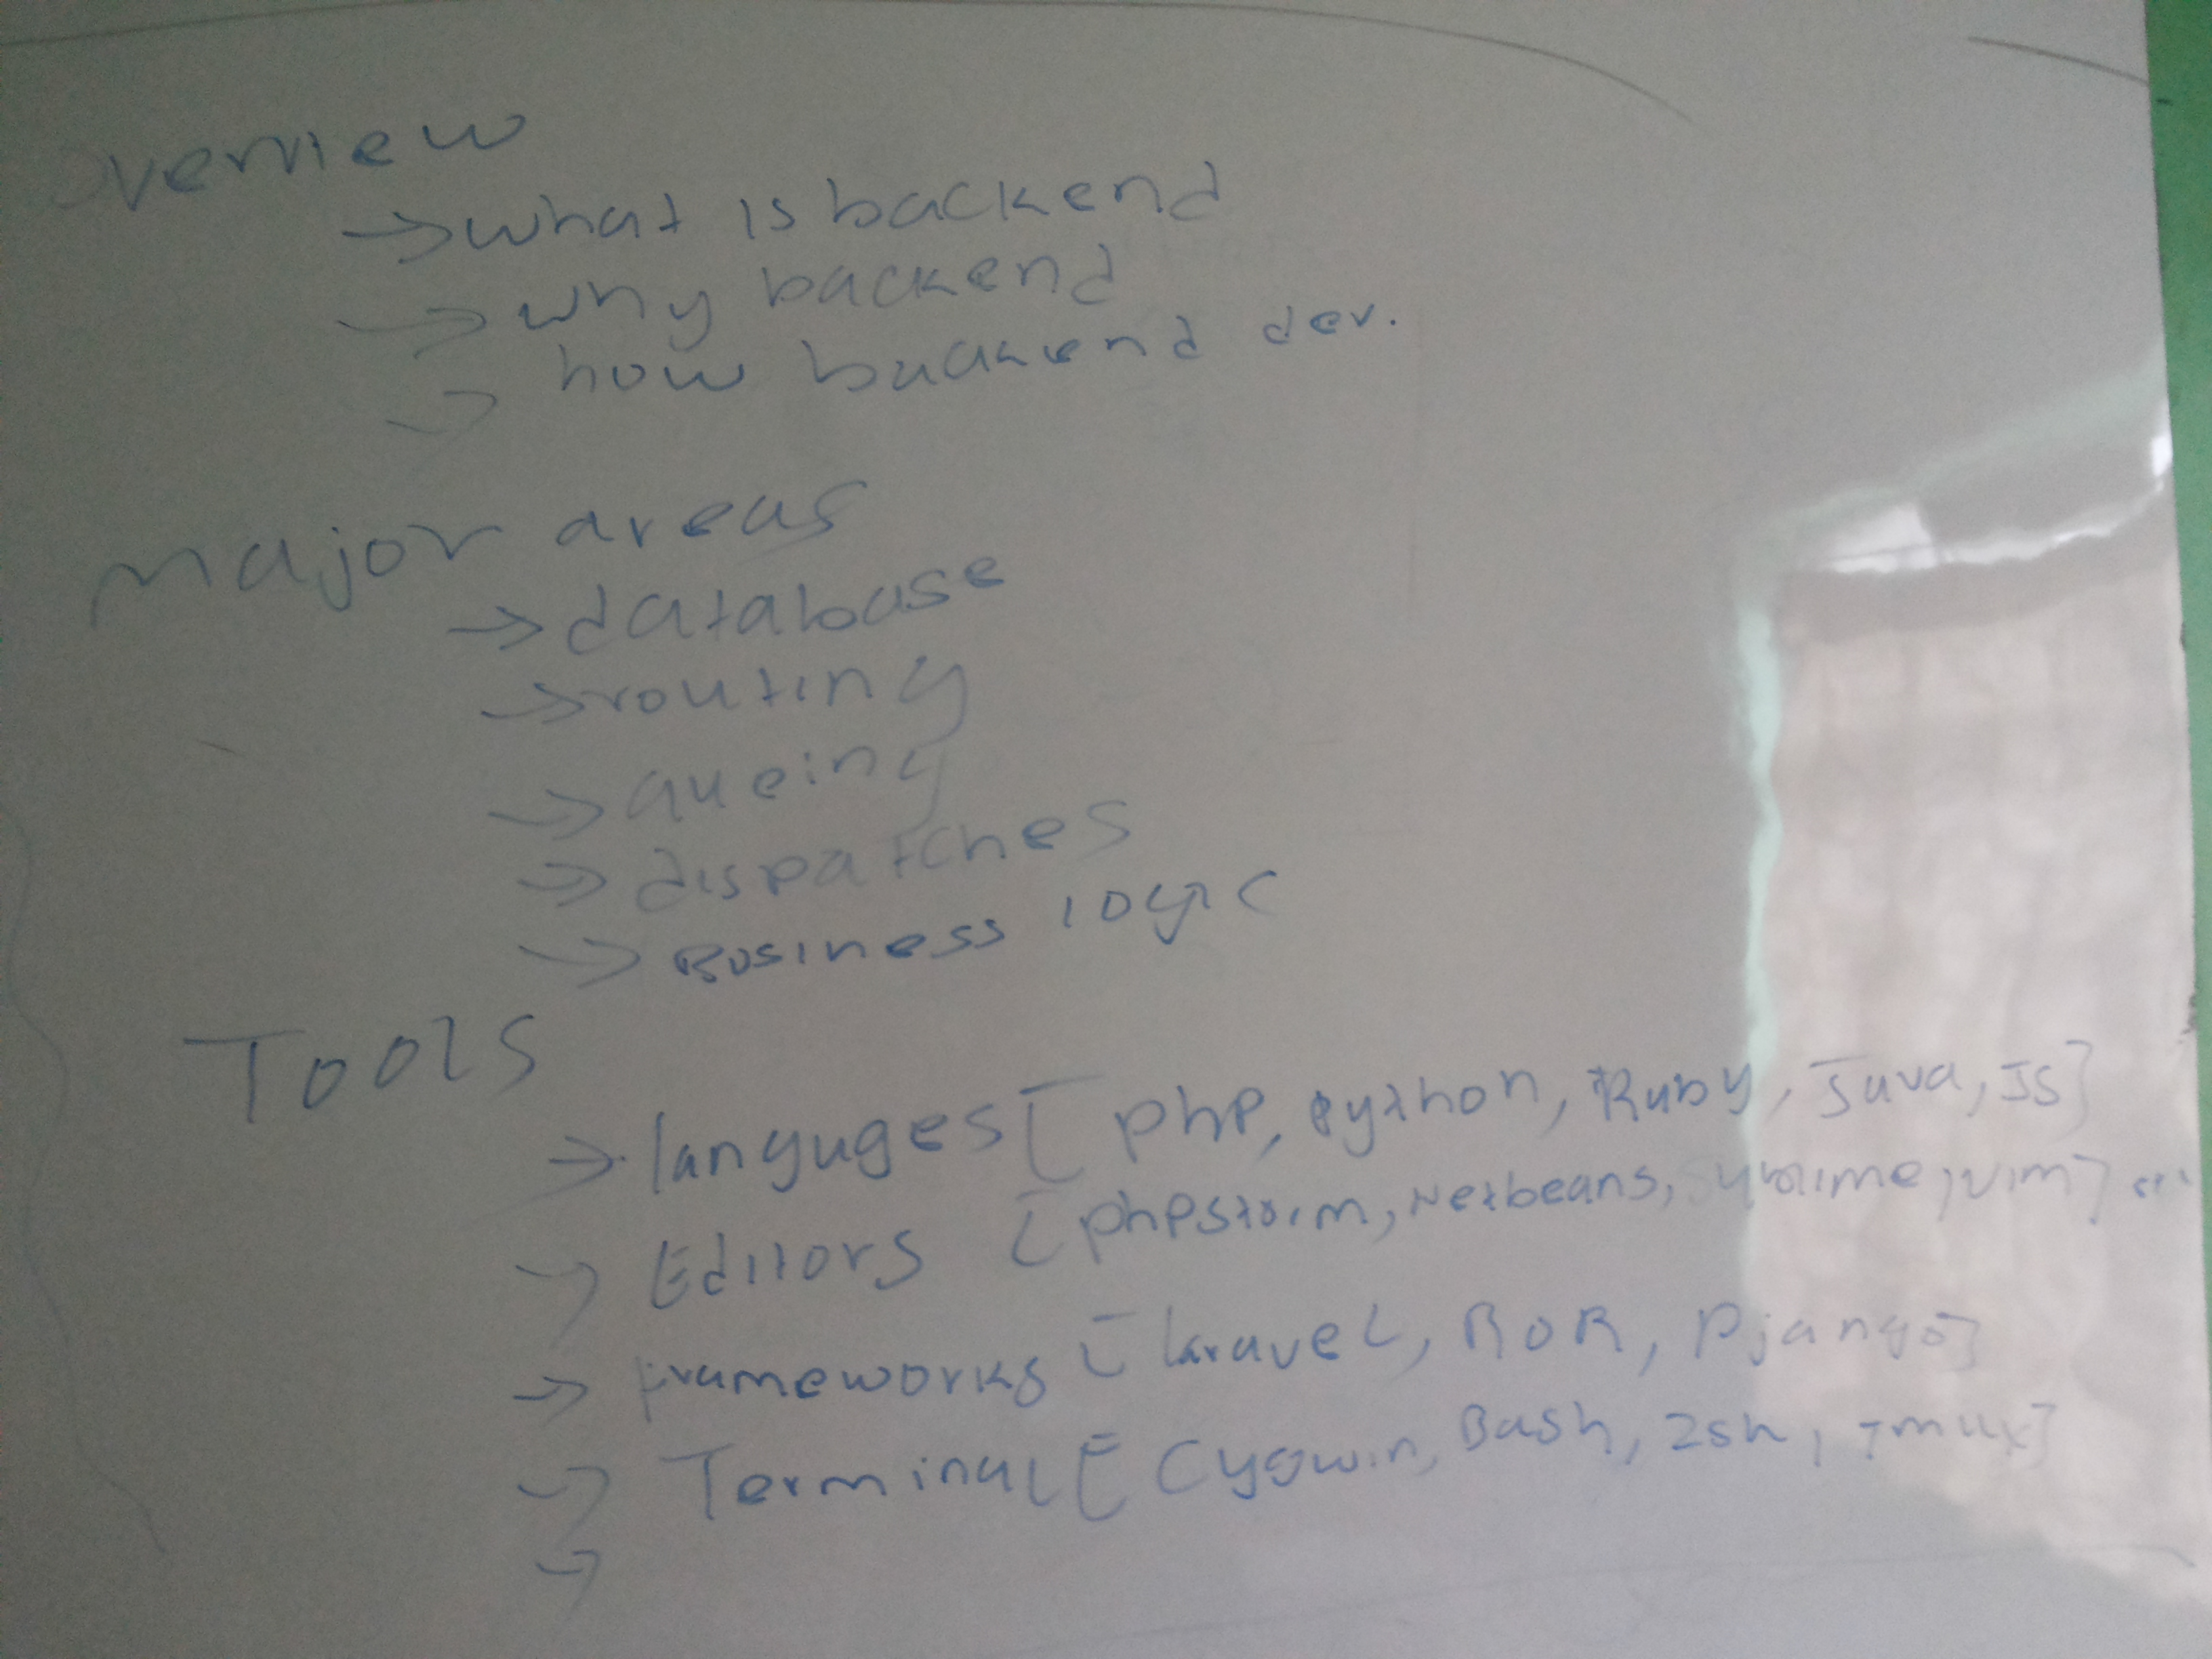 Overview
→ what is backend
→ why backend
→ how backend dev.
Major areas
→ database
→ routing
→ queing
→ dispatches
→ Business logic
Tools
→ languges [php, python, Ruby, Java, JS]
→ Editors [phpstorm, Netbeans, Sublime, vim] ...
→ frameworks [laravel, ROR, Django]
→ Terminal [Cygwin, Bash, Zsh, Tmux]
→